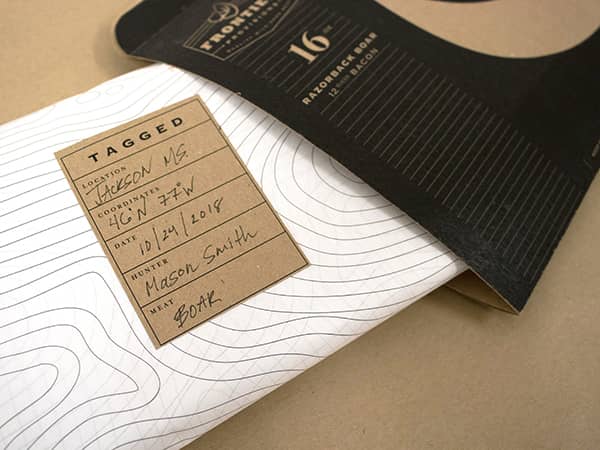 FRONTIE
16 OZ.
RAZORBACK BOAR
BACON
TAGGED
LOCATION
JACKSON MS.
COORDINATES
46°N 77°W
DATE
10/24/2018
HUNTER
Mason Smith
MEAT
BOAR